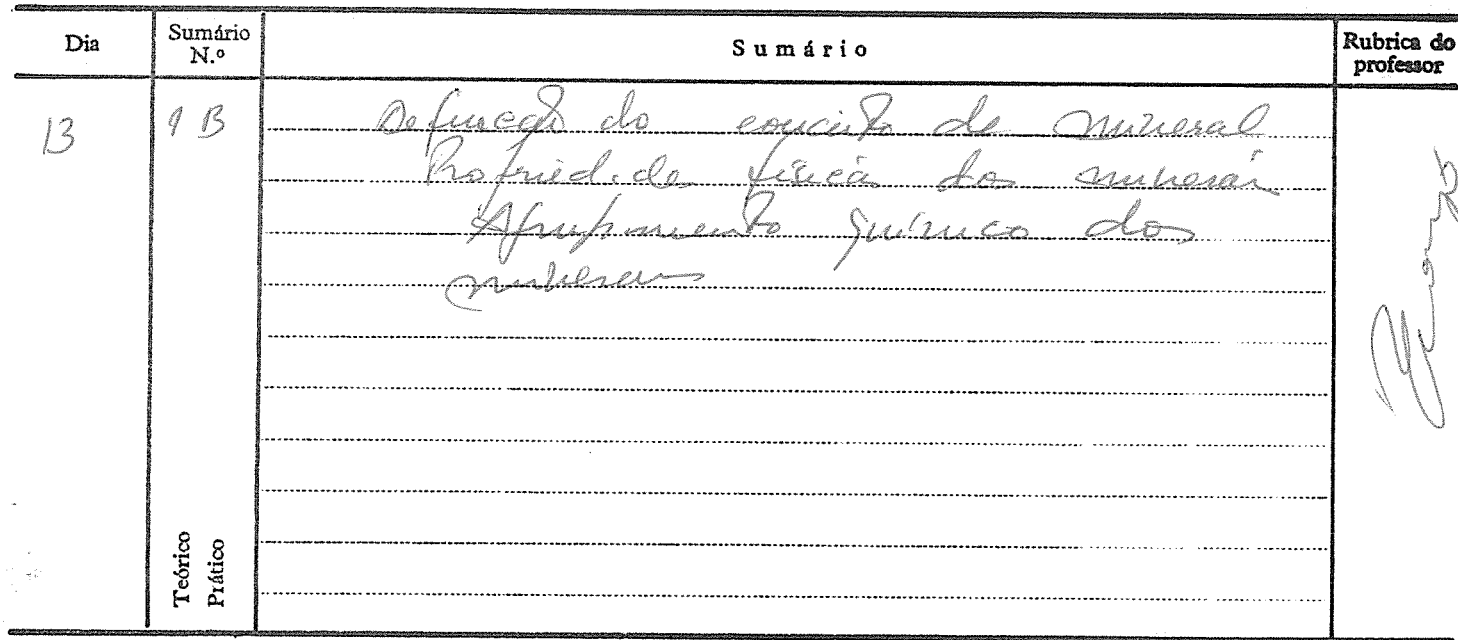 Dia
Sumário N.º
Sumário
Rubrica do professor
13
1 B
Definição do conceito de mineral
Propriedade físicas dos minerais
Agrupamento químico dos
minerais
Teórico
Prático